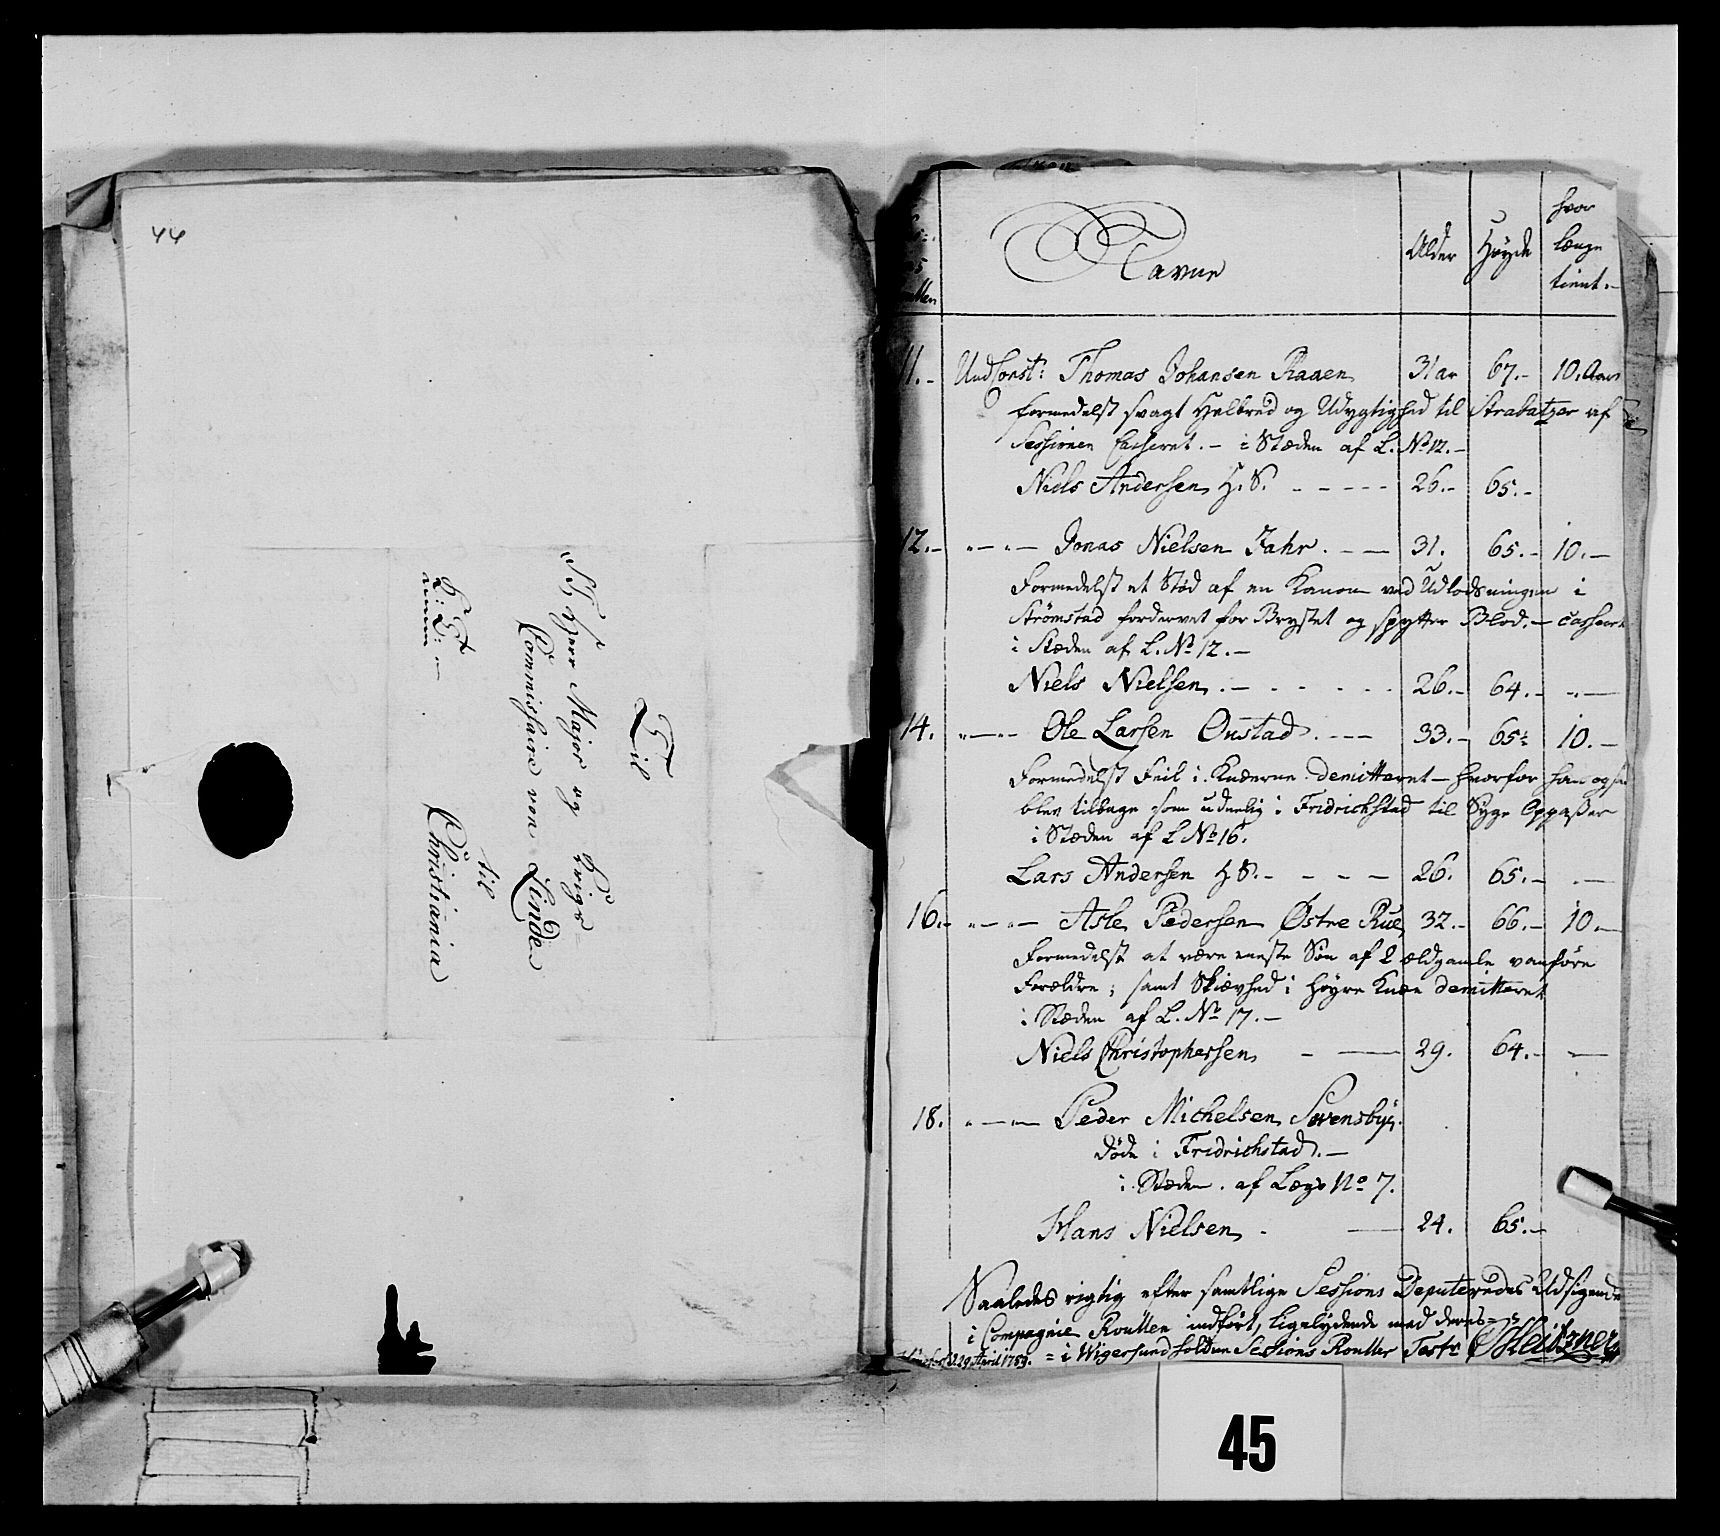 44
Til
S. T. Herr Major og Krigs-
Commissaire von Linde
til
Christiania
Navne
Alder
Høyde
hvor
længe
tient.-
11.- Undconst: Thomas Johansen Raaen 31 ar 67.- 10. Aar
formedelst svagt Helbred og Udygtighed til Strabatzer af
Sessionen Casseret.- i Stæden af L. No 12.-
Niels Andersen H. S. - - - - - 26.- 65.-
12.- "-"- Jonas Nielsen Jahr. - - 31. 65.- 10.-
Formedelst et Stød af en Kanon ved Udlodsningen i
Strømstad fordervet for Brystet og spytter Blod.- Casseret
i Stæden af L. No 12.-
Niels Nielsen. - - - - - 26.- 64.- -.-
14. "-"- Ole Larsen Oustad. - - - 33.- 65½ 10.-
Formedelst Feil i Knæerne demitteret - hvorfor han og
blev tilbage som udenlig i Fridrichstad til Syge Oppasser
i Stæden af L No 16.
Lars Andersen H S. - - - - 26. 65.- .-
16.- "-"- Asle Pedersen Østre Rue 32.- 66.- 10.-
Formedelst at være eneste Søn af 2 ældgamle vanføre
Forældre; samt Skiævhed i høyre Knæe demitteret
i Stæden af L. No 17.-
Niels Christophersen - - 29. 64.- -
18. "-"- Peder Michelsen Svensbye.
døde i Fridrichstad.-
i Stæden af Lægs No 7.
Hans Nielsen. - - 24. 65.-
Saaledes rigtig efter samtlige Sessions Deputeredes Udsigende
i Compagnie Roullen indført, ligelydende med deres
d. 29 April 1789. = i Wigersund holdne Sessions Roulle Test: Heitzner
45